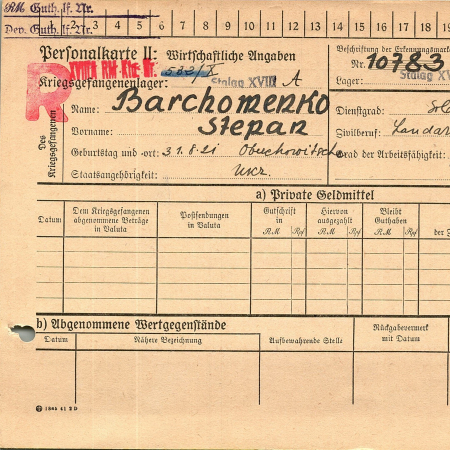 RM Guth. lf. Nr.
Dev. Guth. lf. Nr.
1 2 3 4 5 6 7 8 9 10 11 12 13 14 15 16 17 18 19
Personalkarte II: Wirtschaftliche Angaben
Beschriftung der Erkennungsmarke
Nr. 10783
Kriegsgefangenenlager: Stalag XVIII A
Lager: Stalag XVIII
R
Des Kriegsgefangenen
Name: Barchomenko
Vorname: Stepan
Dienstgrad: Sol
Zivilberuf: Landar
Geburtstag und -ort: 31.8.21 Obuchowitsche
Grad der Arbeitsfähigkeit:
Staatsangehörigkeit: Ukr.
a) Private Geldmittel
Datum
Dem Kriegsgefangenen abgenommene Beträge in Valuta
Postsendungen in Valuta
Gutschrift in
RM Rpf
Hiervon ausgezahlt
RM Rpf
Bleibt Guthaben
RM Rpf
der
b) Abgenommene Wertgegenstände
Datum
Nähere Bezeichnung
Aufbewahrende Stelle
Rückgabevermerk mit Datum
1865 41 2 D